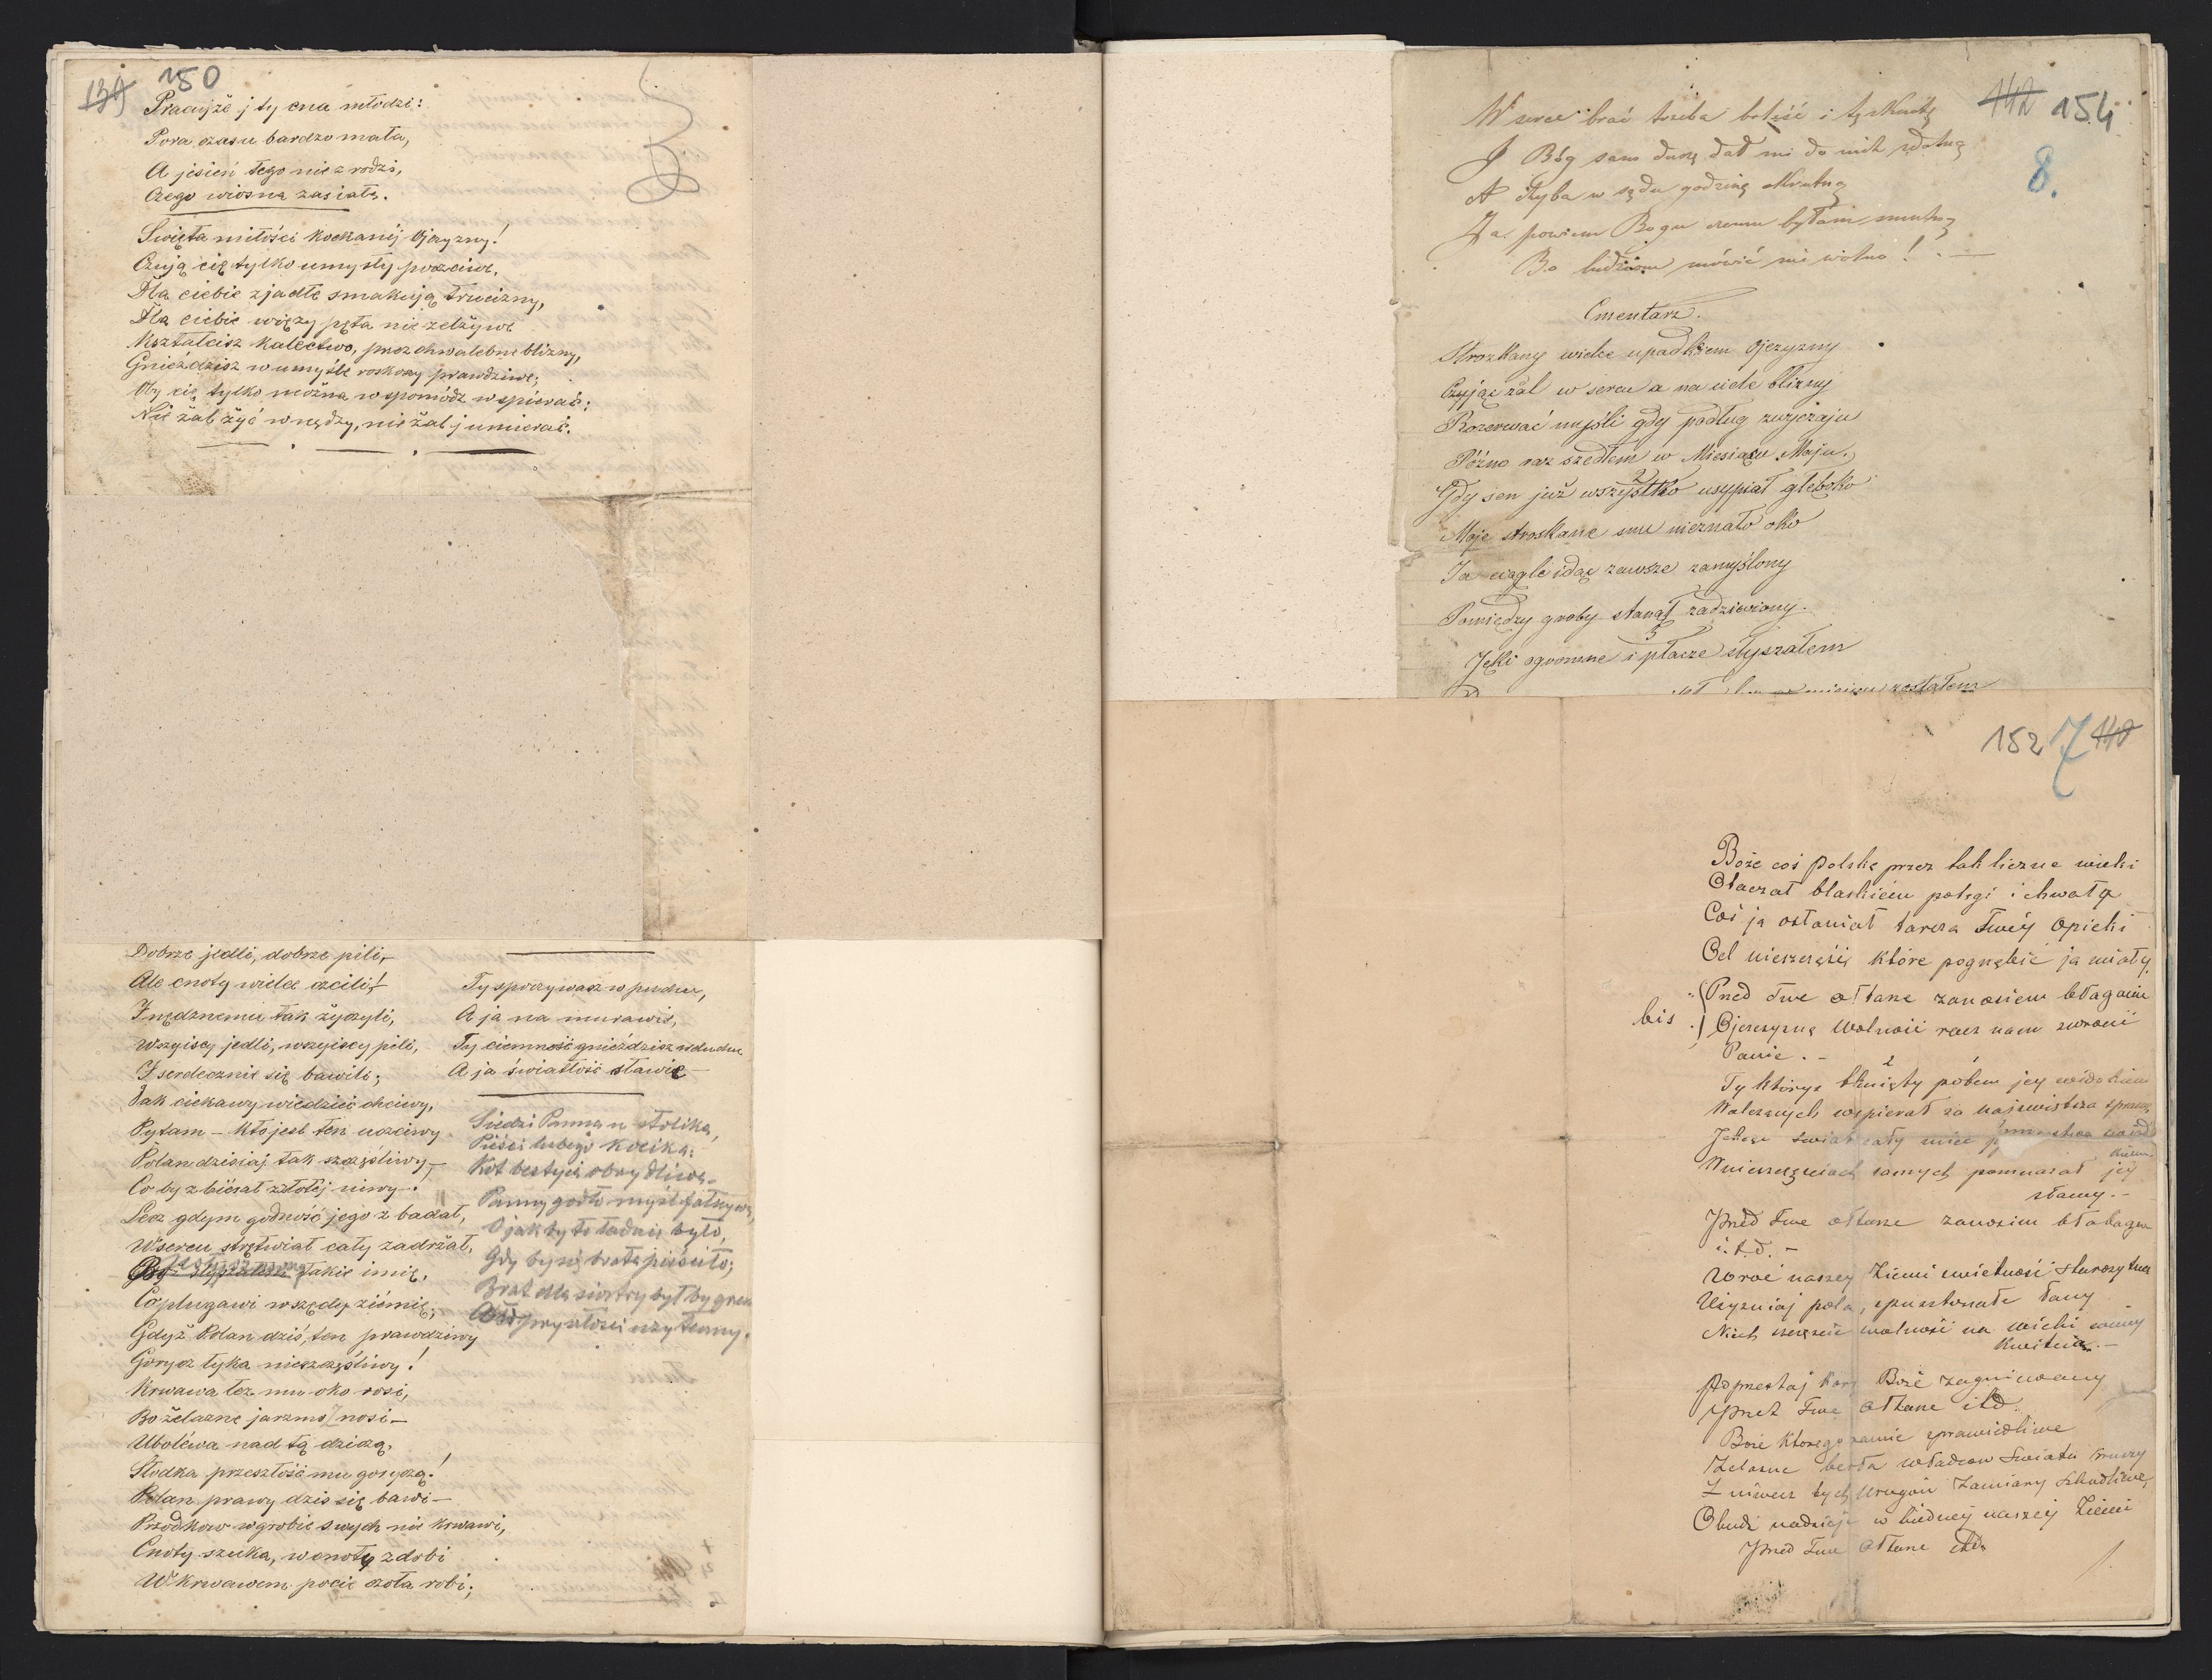 139 150
Pracujże j ty cna młodzi:
Pora czasu bardzo mała,
A jesień tego nie zrodzi,
Czego wiosną zasiała.
Święta miłości kochanéj Ojczyzny!
Czują cię tylko umysły poczciwe,
Dla ciebie zjadłe smakują trucizny,
Dla ciebie więzy pęta nie zelżywe
Kształcisz kalectwo, przez chwalebne blizny,
Gnieździsz w umyśle roskoszy prawdziwe;
Oby cię tylko można wspomódz wspierać;
Nie żal żyć w nędzy, nie żal j umierać.
Dobrze jedli, dobrze pili,
Ale cnoty wielce czcili!
I nędznemu tak życzyli,
Wszyiscy jedli, wszyiscy pili,
I serdecznie się bawili;
Jak ciekawy wiedzieć chciwy,
Pytam – kto jest ten uczciwy
Polan dzisiaj tak szczęśliwy,
Co by zbiérał złotéj niwy.
Lecz gdym godność jego zbadał,
W sercu strętwiał cały zadrżał,
takie imię,
Co plugawi wszędy ziémię;
Gdyż Polan dziś, ten prawdziwy
Gorycz łyka nieszczęśliwy!
Krwawa łez mu oko rosi,
Bo żelazne jarzmo nosi –
Uboléwa nad tą dziczą,
Słodka przeszłość mu goryczą!
Polan prawy dziś się bawi –
Przodkow w grobie swych nie krwawi,
Cnoty szuka, w cnotę zdobi
W krwawem pocie czoła robi;
Ty spoczywasz w puchu,
A ja na murawie,
Ty ciemność gnieździsz w duchu
A ja światłość sławię
Siedzi Panna u stolika,
Pieści lubego kocika:
Kot bestyja obrydliwa –
Panny godło myśl fałszywa,
O jak by to ładnie było,
Gdy by się brata pieściło;
Brat dla siostry był by
142 154
8.
W serce brać trzeba boleść i tęsknotę
I Bóg sam duszę dał mi do nich zdolną
A chyba w sądu godzinę okrutną
Ja powiem Bogu czemu byłam smutną
Bo ludziom mówić nie wolno! –
Cmentarz.
Stroskany wielce upadkiem Ojczyzny
Czując żal w sercu a na ciele blizny
Rozerwać myśli gdy podług zwyczaju
Późno raz szedłem w Miesiącu Maju.
2
Gdy sen już wszystko usypiał głęboko
Moje stroskane snu nieznało oko
Ja ciągle idąc zawsze zamyślony
Pomiędzy groby stanął zadziwiony.
3
Jęki ogromne i płacze słyszałem
zostałem
152 7 140
Boże coś Polskę przez tak liczne wieki
Otaczał blaskiem potęgi i chwałą
Coś ja osłaniał tarcza Twéy Opieki
Od nieszczęść które pognębić ja miały
Pred Twe ołtarze zanosiem błaganie
bis Ojczyznę Wolność racz nam zwrocić
Panie. –
2
Ty któryś tknięty potem jey upadkiem
Walczących wspierał za najswiętsza sprawę
Wnieszczęściach samych pomnażał jey
sławy. –
Pred Twe ołtarze zanosim
i. t. d. –
Wroć naszey Ziemi swietność starożytna
Użyzniaj pola, spustoszałe łany
Niech szczęście wolność na wieki
kwitną. –
Poprzestaj kary Boże zagniewany
Pred Twe Ołtarze itd.
Boże ktorego ramie sprawiedliwe
Żelazne berła władcow Swiata kruszy
Z niwecz tych wrogów Zamiary Szkodliwe
Obudź nadzieje w biedney naszéj Ziemi
Pred Twe Ołtarze itd.